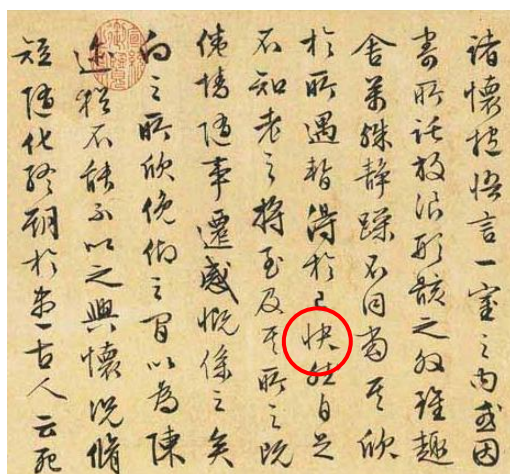 諸懷抱悟言一室之內或因
寄所託放浪形骸之外雖趣
舍萬殊靜躁不同當其欣
於所遇暫得於己快然自足
不知老之將至及其所之既
倦情隨事遷感慨係之矣
向之所欣俛仰之間以為陳
迹猶不能不以之興懷況脩
短隨化終期於盡古人云死